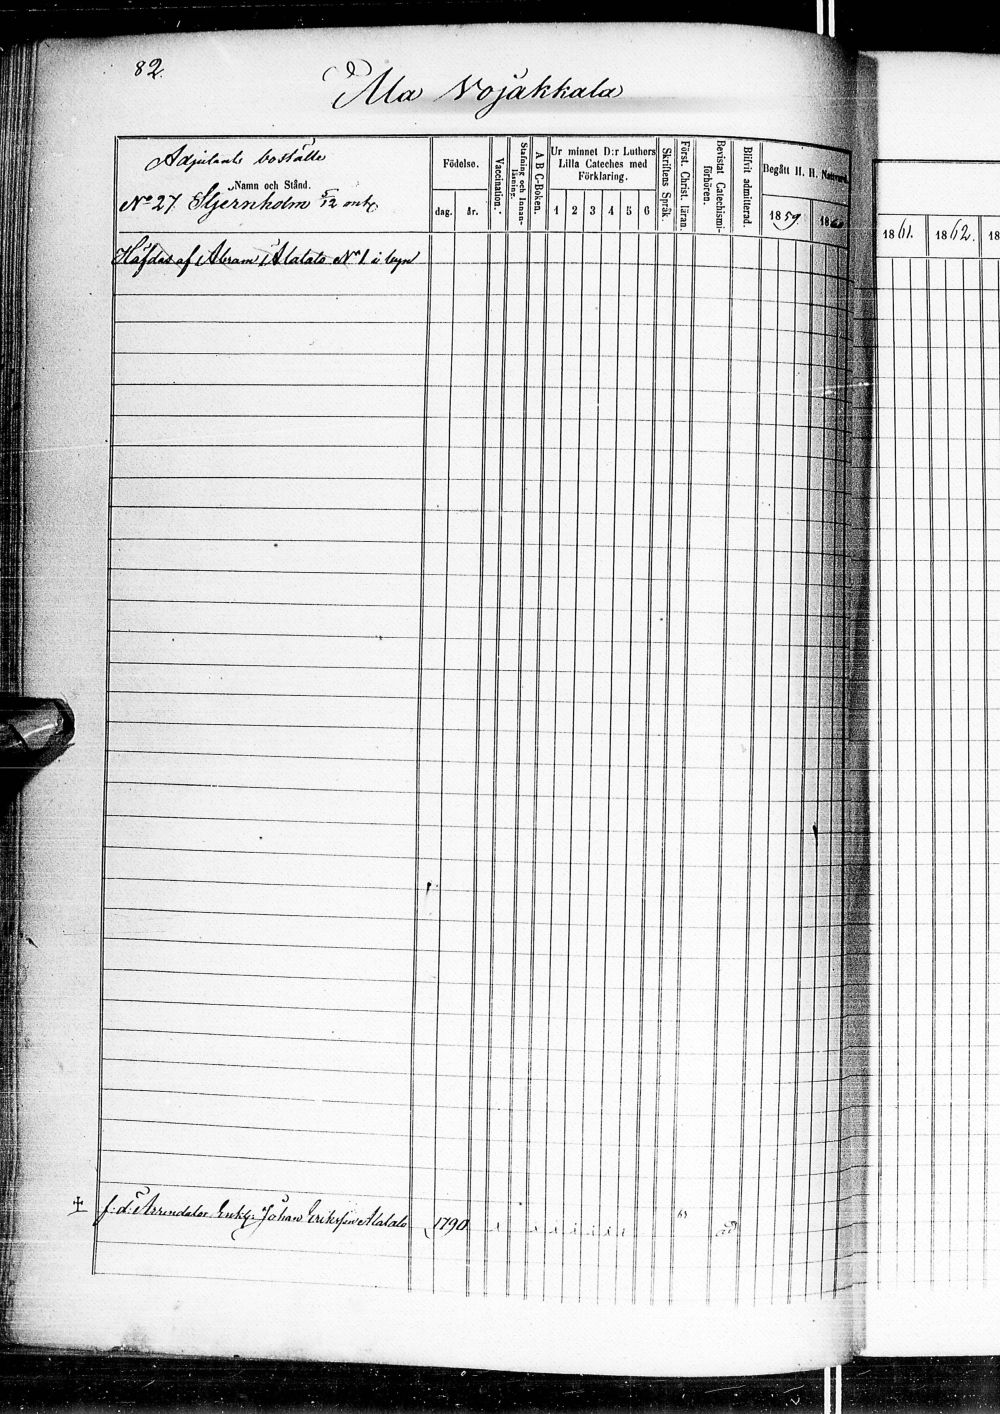 82.
Ala Vojakkala
Adjutants boställe
Namn och Stånd.
No 27 Stjernholm 5/12 mtl
Födelse.
dag. år.
Vaccination.
Stafning och Innanläsning.
A B C-Boken.
Ur minnet D:r Luthers Lilla Cateches med Förklaring.
1 2 3 4 5 6
Skriftens Språk.
Först. Christ. läran.
Bevistat Catechismiförhören.
Blifvit admitterad.
Begått H. H. Nattvard.
1859 1860
1861. 1862. 18
Häfdas af Abram Alatalo No 1 i byn
f: d: Arrendator Enkl: Johan Eriksson Alatalo 1790